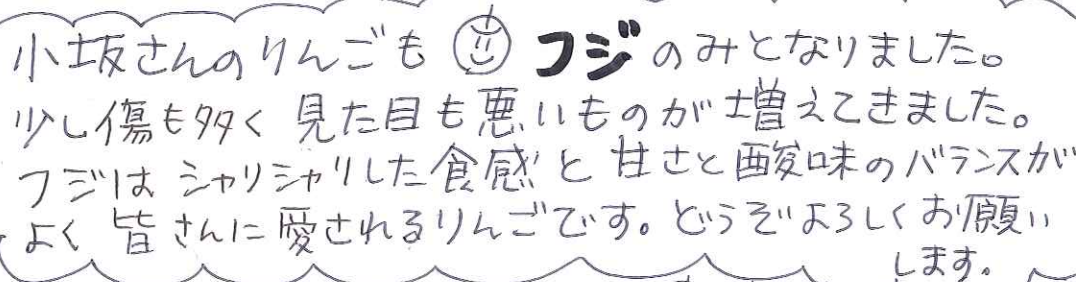 小坂さんのりんごも フジのみとなりました。
少し傷も多く 見た目も悪いものが増えてきました。
フジは シャリシャリした食感と 甘さと酸味のバランスが
よく 皆さんに愛されるりんごです。どうぞよろしくお願い
します。